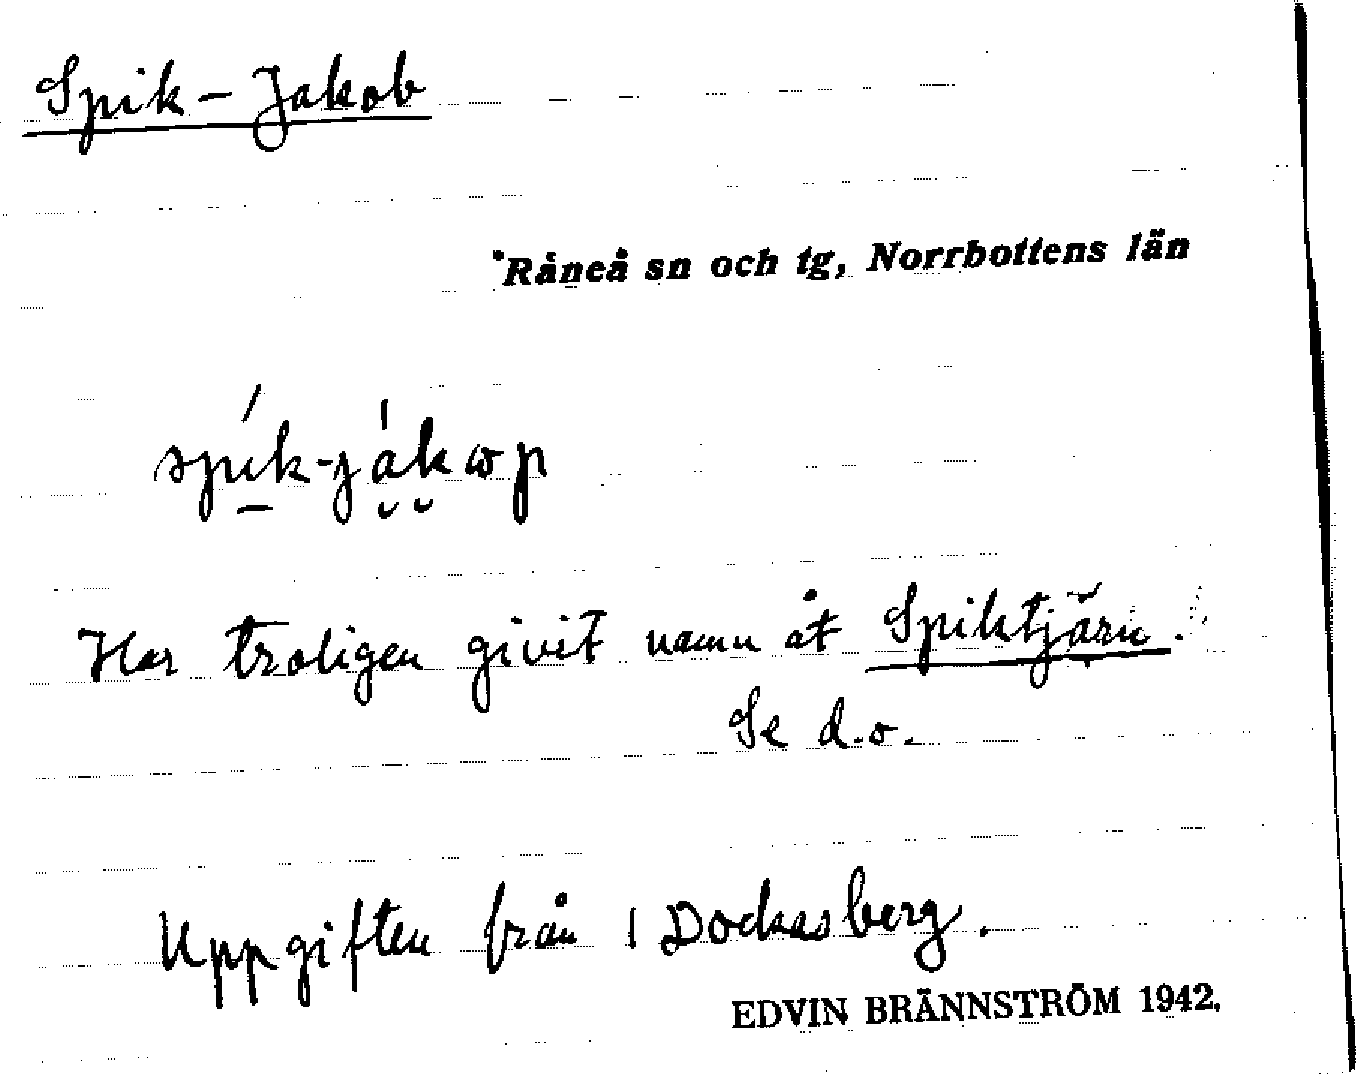 Spik-Jakob
Råneå sn och tg, Norrbottens län
spík-jákωp
Har troligen givit namn åt Spiktjärn.
Se d.o.
Uppgiften från 1 Dockasberg.
EDVIN BRÄNNSTRÖM 1942.